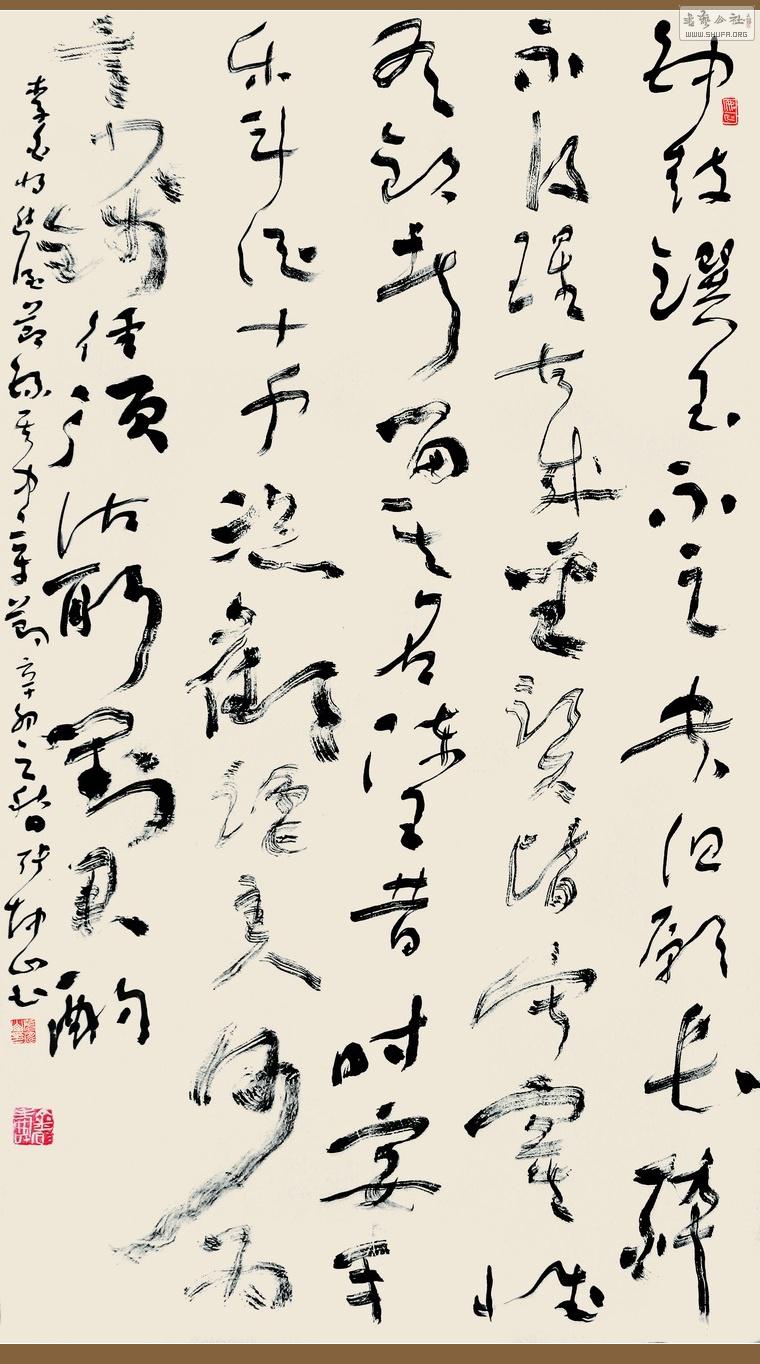 书艺公社
WWW.SHUFA.ORG
钟鼓馔玉不足贵但愿长醉
不复醒古来圣贤皆寂寞惟
有饮者留其名陈王昔时宴平
乐斗酒十千恣歡谑主人何为
言少钱径须沽取對君酌
李白将进酒节録其中章节辛卯之张坤山书